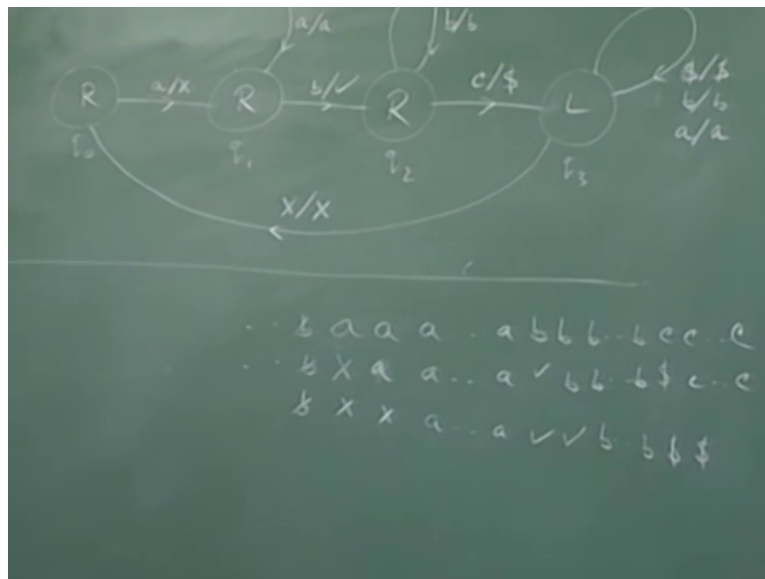 a/a b/b
R a/x R b/✓ R c/$ L $/$
b/b
a/a
q₀ q₁ q₂ q₃
X/X
.. ƀ a a a .. a b b b .. b c c .. c
.. ƀ X a a .. a ✓ b b .. b $ c .. c
ƀ X X a .. a ✓ ✓ b .. b $ $